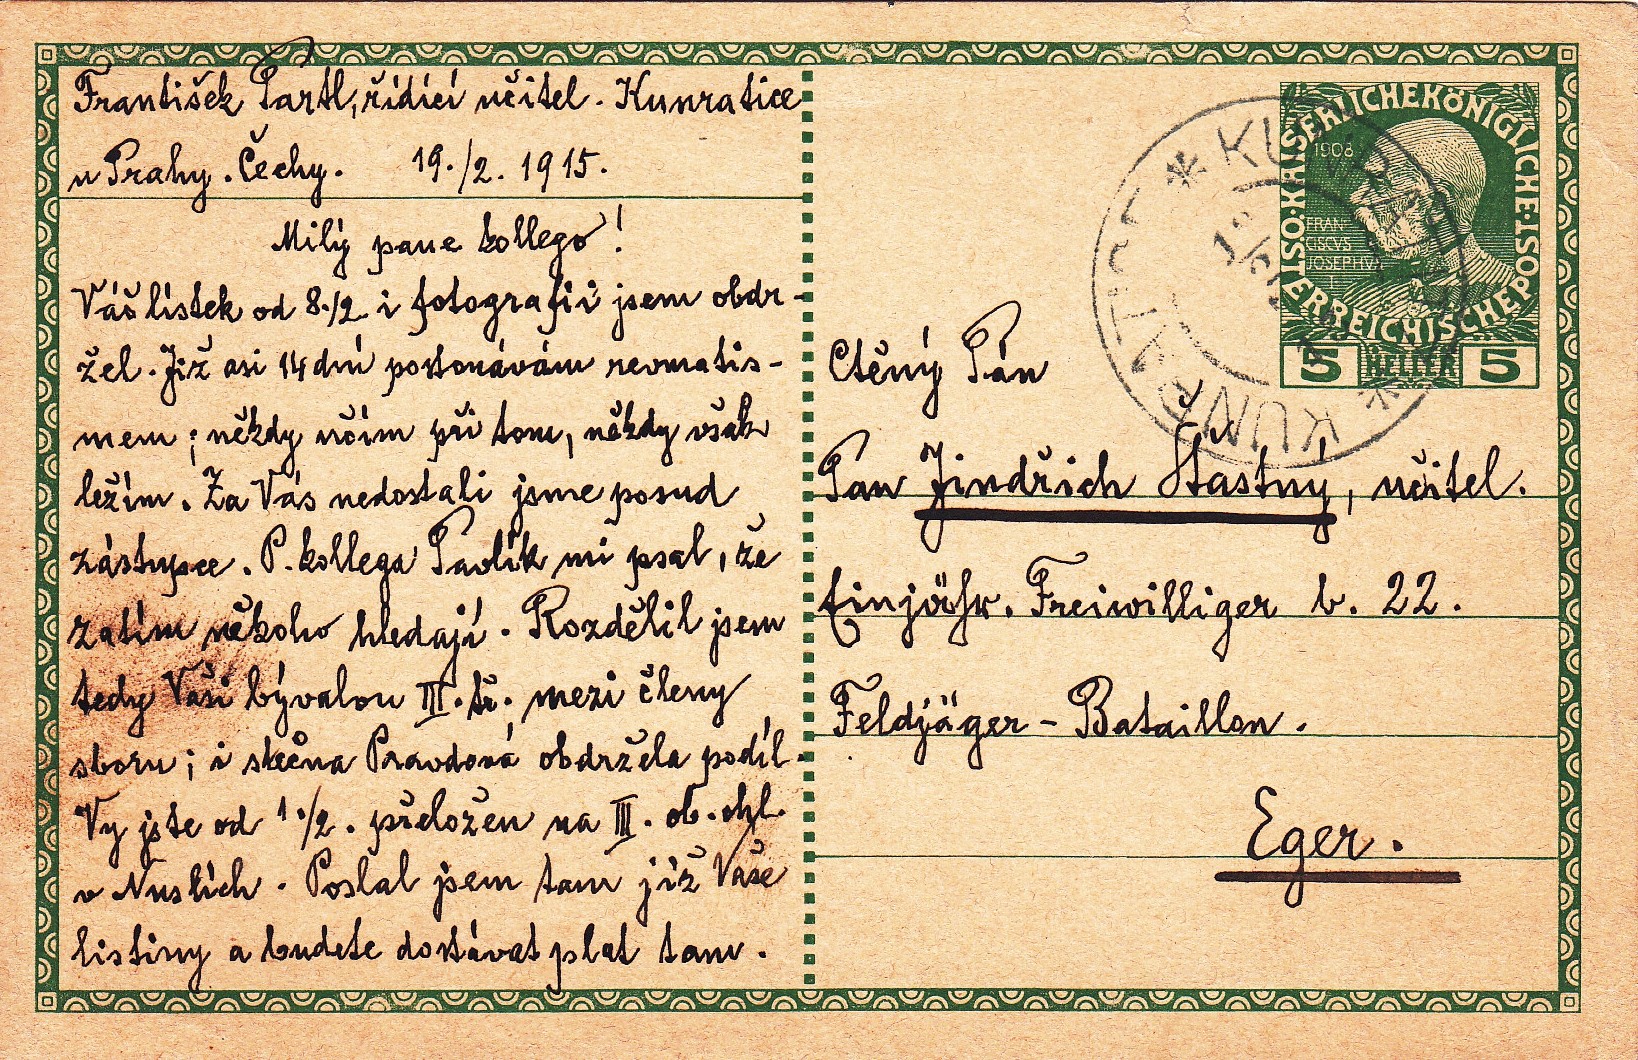 František Partl, řídící učitel. Kunratice
u Prahy. Čechy. 19./2. 1915.
Milý pane kollego!
Váš lístek od 8./2 i fotografii jsem obdr-
žel. Již asi 14 dní postonávám revmatis-
mem; někdy učím při tom, někdy však
ležím. Za Vás nedostali jsme posud
zástupce. P. kollega Pavlík mi psal, že
zatím někoho hledají. Rozdělil jsem
tedy Vaši bývalou III. tř. mezi členy
sboru; i slečna Pravdová obdržela podíl.
Vy jste od 1./2. přeložen na III. ob. chl.
v Nuslích. Poslal jsem tam již Vaše
listiny a budete dostávat plat tam.
KAISERLICHE KÖNIGLICHE
ÖSTERREICHISCHE POST
1908
FRAN-
CISCVS
JOSEPHVS I
5 HELLER 5
KUNRATICE
KUNRATICE
Ctěný Pán
Pan Jindřich Šťastný, učitel.
Einjähr. Freiwilliger b. 22.
Feldjäger-Bataillon.
Eger.